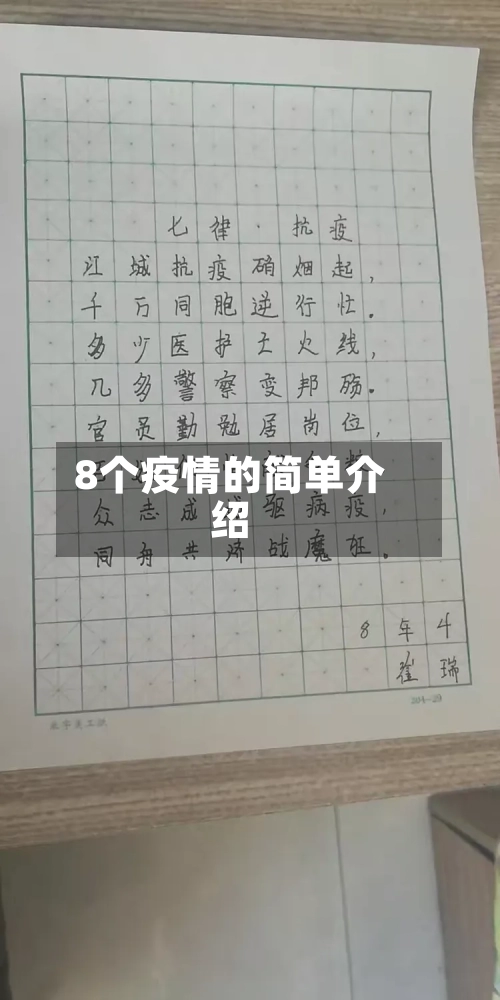 七律·抗疫
江城抗疫硝烟起，
千万同胞逆行忙。
多少医护上火线，
几多警察变邦殇。
官员勤勉居岗位，
8个疫情的简单介
绍
众志成城驱病疫，
同舟共济战魔狂。
8年4
瑞
204-29